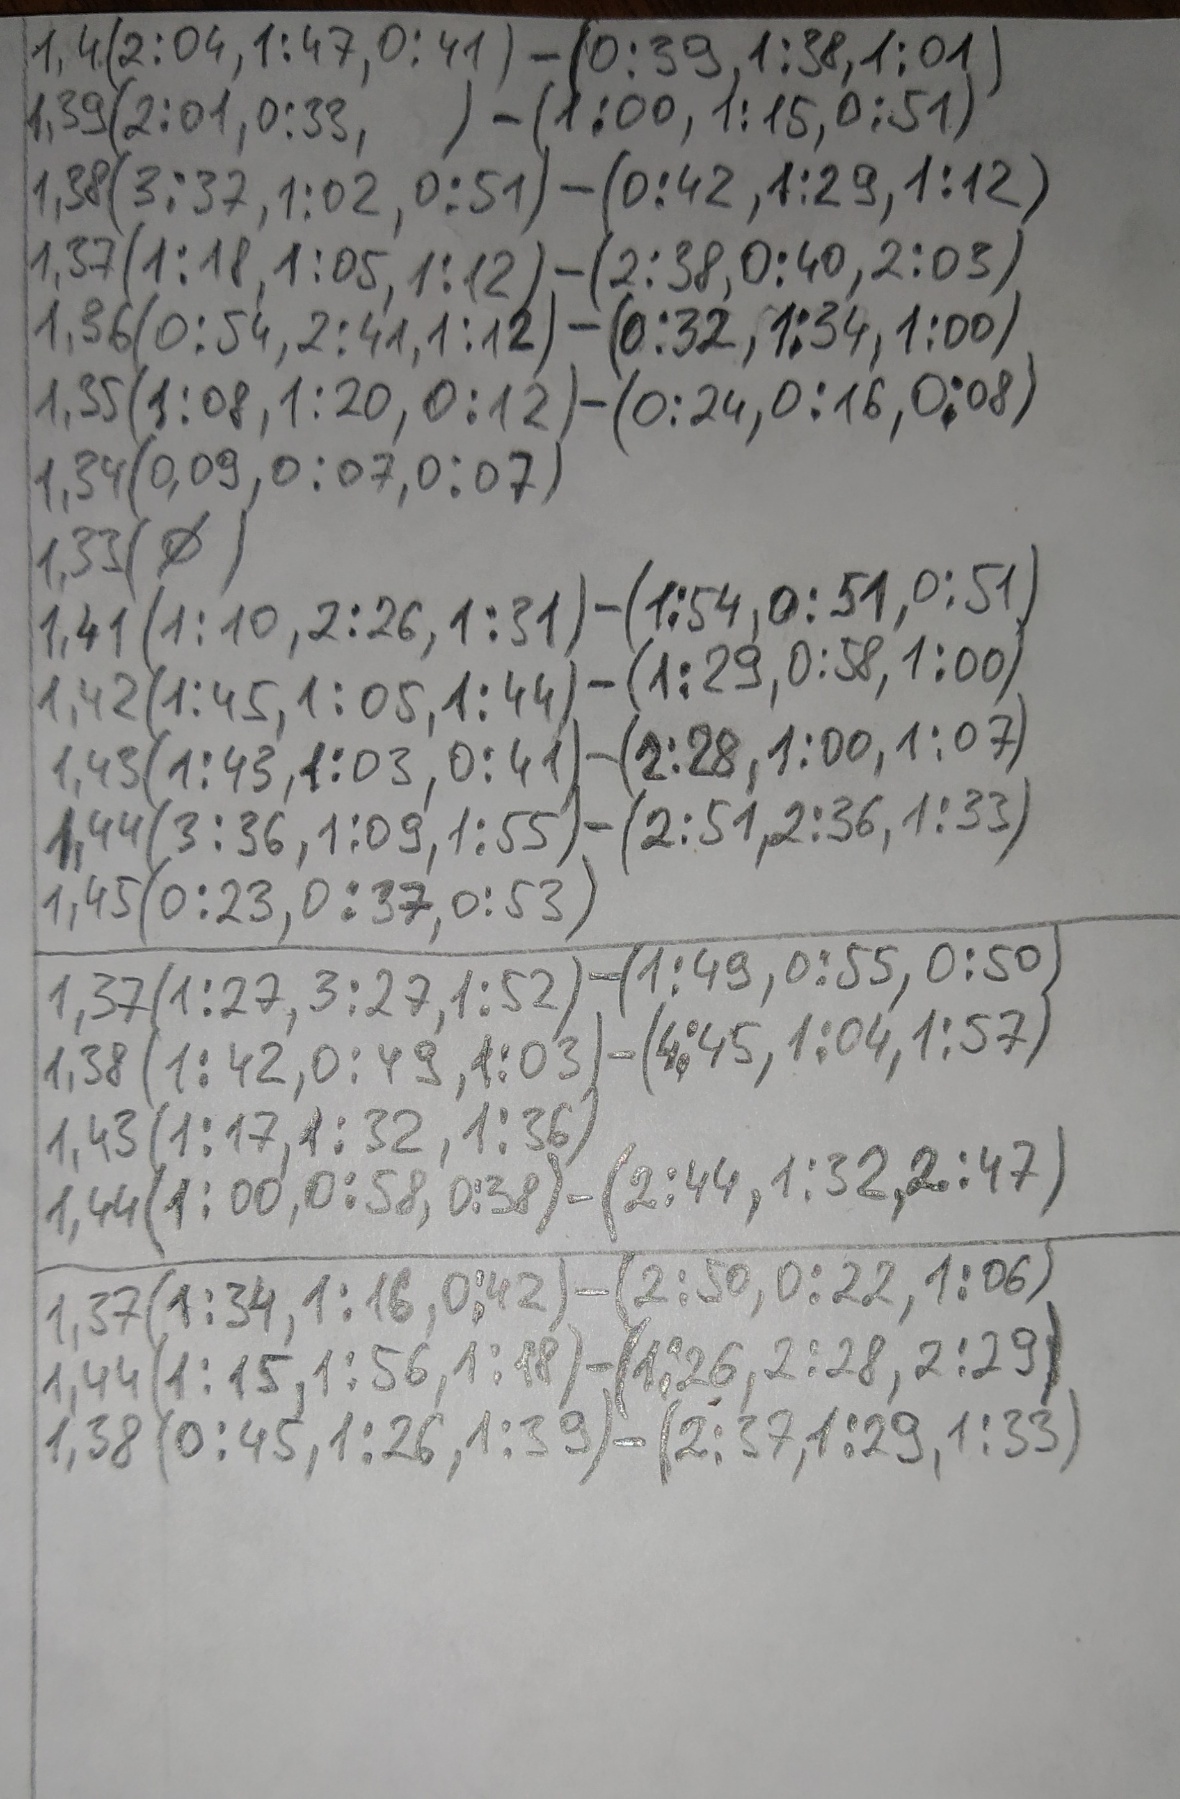 1,4(2:04,1:47,0:41)-(0:39,1:38,1:01)
1,39(2:01,0:33, )-(1:00,1:15,0:51)
1,38(3:37,1:02,0:51)-(0:42,1:29,1:12)
1,37(1:18,1:05,1:12)-(2:38,0:40,2:03)
1,36(0:54,2:41,1:12)-(0:32,1:34,1:00)
1,35(1:08,1:20,0:12)-(0:24,0:16,0:08)
1,34(0,09,0:07,0:07)
1,33(Ø)
1,41(1:10,2:26,1:31)-(1:54,0:51,0:51)
1,42(1:45,1:05,1:44)-(1:29,0:58,1:00)
1,43(1:43,1:03,0:41)-(2:28,1:00,1:07)
1,44(3:36,1:09,1:55)-(2:51,2:36,1:33)
1,45(0:23,0:37,0:53)
1,37(1:27,3:27,1:52)-(1:49,0:55,0:50)
1,38(1:42,0:49,1:03)-(4:45,1:04,1:57)
1,43(1:17,1:32,1:36)
1,44(1:00,0:58,0:38)-(2:44,1:32,2:47)
1,37(1:34,1:16,0:42)-(2:50,0:22,1:06)
1,44(1:15,1:56,1:18)-(1:26,2:28,2:29)
1,38(0:45,1:26,1:39)-(2:37,1:29,1:33)